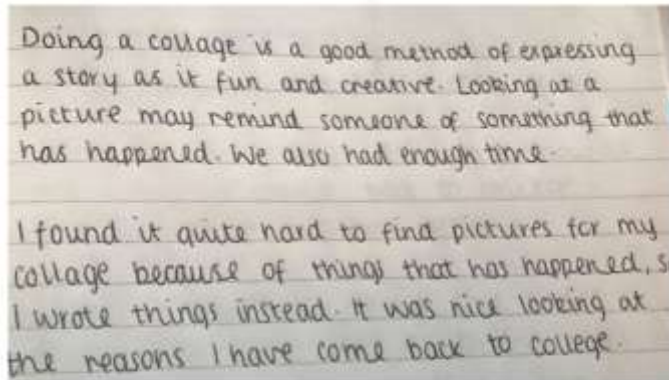 Doing a collage is a good method of expressing
a story as it fun and creative. Looking at a
picture may remind someone of something that
has happened. We also had enough time.
I found it quite hard to find pictures for my
collage because of things that has happened, s
I wrote things instead. It was nice looking at
the reasons I have come back to college.